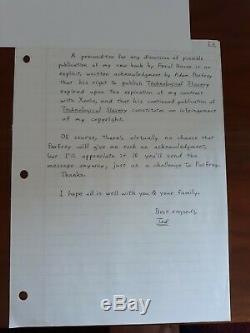 A precondition for any discussion of possible
publication of my new book by Feral House is an
explicit, written acknowledgment by Adam Parfrey
that his right to publish Technological Slavery
expired upon the expiration of my contract
with Xenia, and that his continued publication of
Technological Slavery constitutes an infringement
of my copyright.
Of course, there's virtually no chance that
Parfrey will give me such an acknowledgment,
but I'll appreciate it if you'll send the
message anyway, just as a challenge to Parfrey.
Thanks.
I hope all is well with you & your family.
Best regards,
Ted